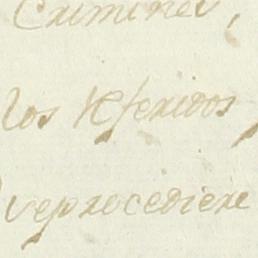 Criminel,
los referidos
ue procediere